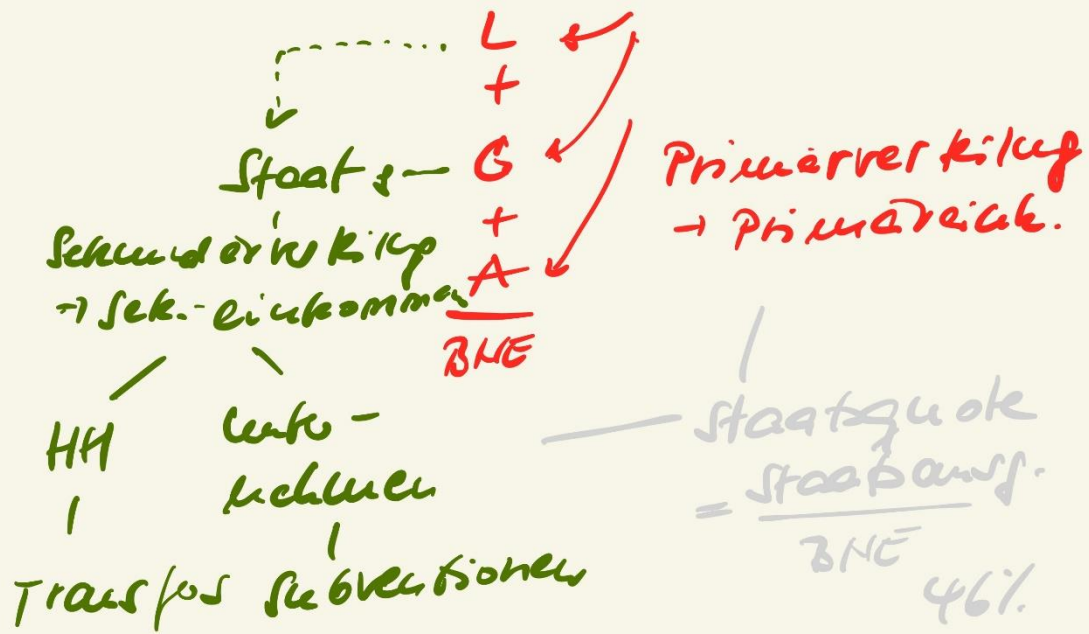 L
+
G
+
A
BNE
Primärverteilung
→ Primäreink.
Staat
Sekundärverteilung
→ Sek.-einkommen
HH
Unter-
nehmen
Transfers
Subventionen
Staatsquote
= Staatsausg.
BNE
46%